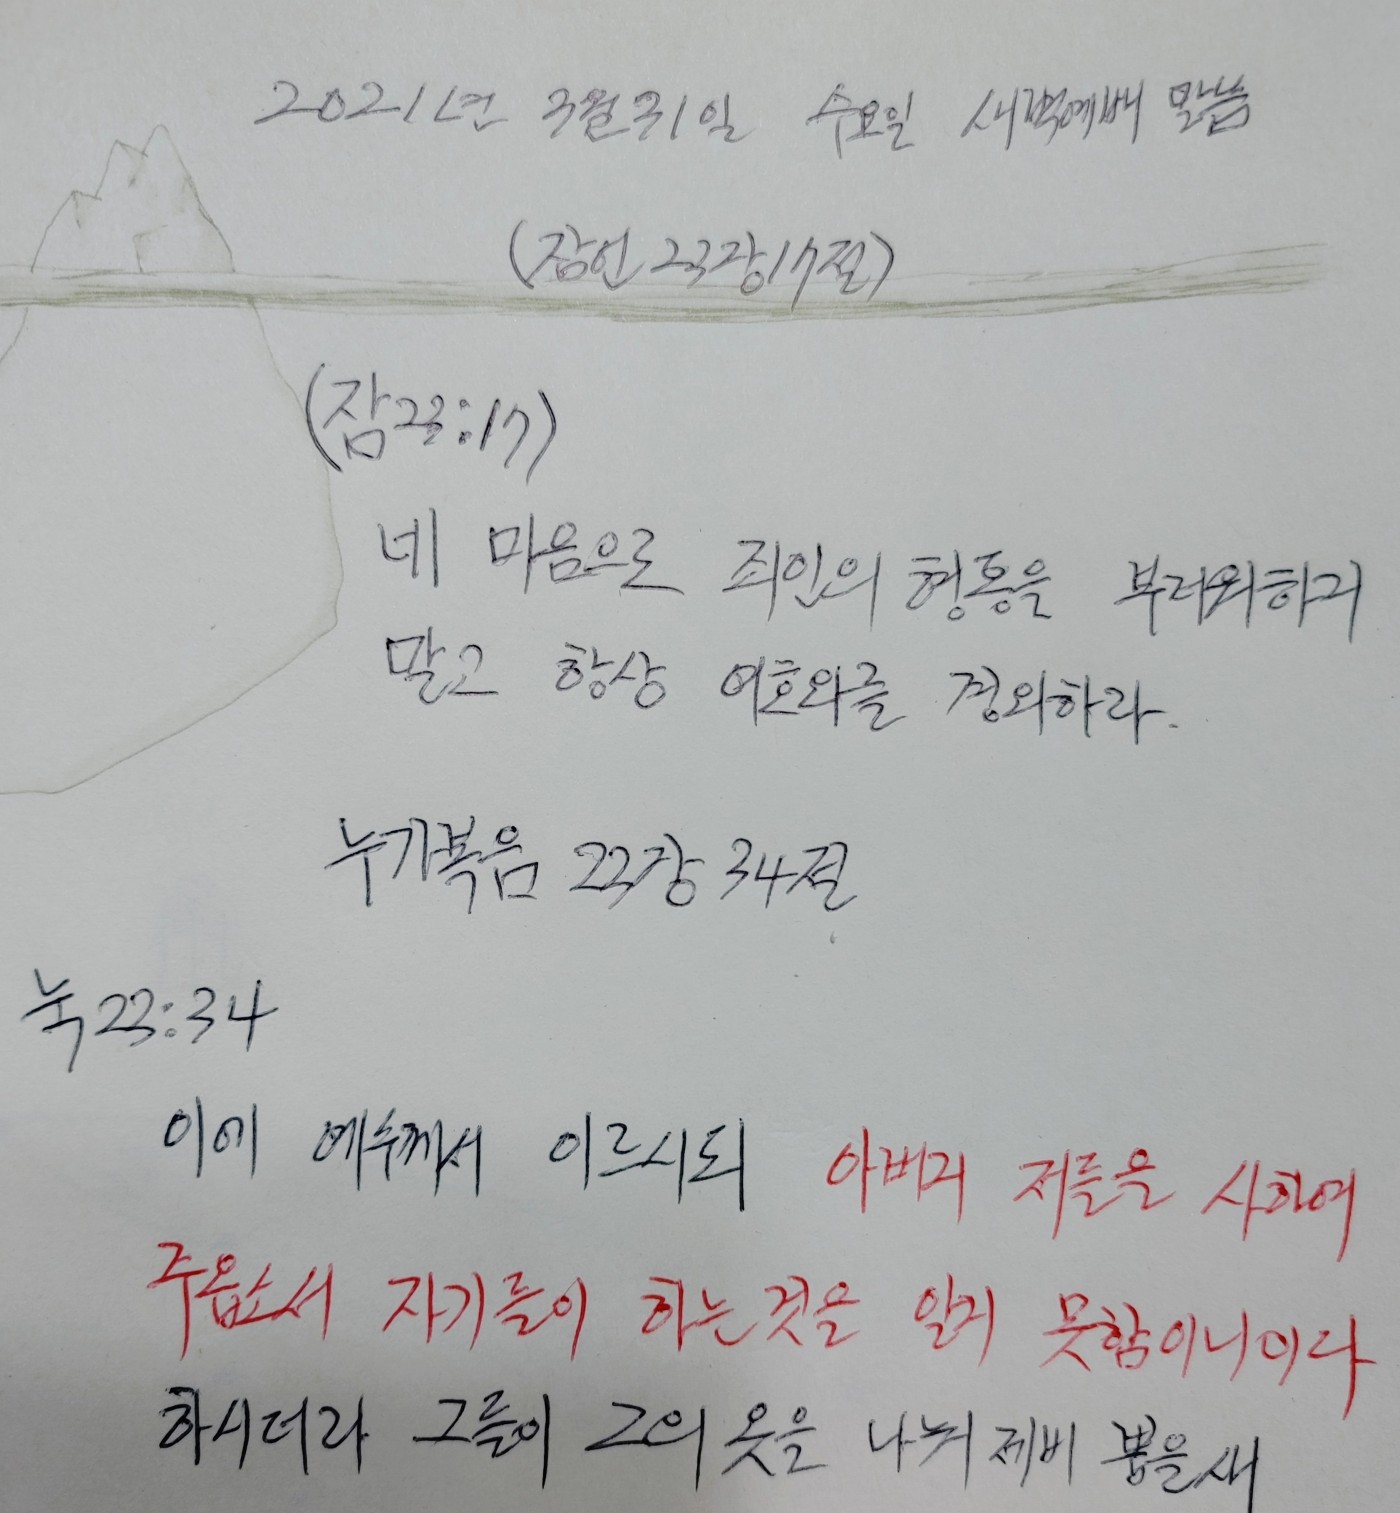 2021년 3월31일 수요일 새벽예배 말씀
(잠언 23장17절)
(잠23:17)
네 마음으로 죄인의 형통을 부러워하지
말고 항상 여호와를 경외하라.
누가복음 23장 34절
눅23:34
이에 예수께서 이르시되 아버지 저들을 사하여
주옵소서 자기들이 하는것을 알지 못함이니이다
하시더라 그들이 그의 옷을 나눠 제비 뽑을새